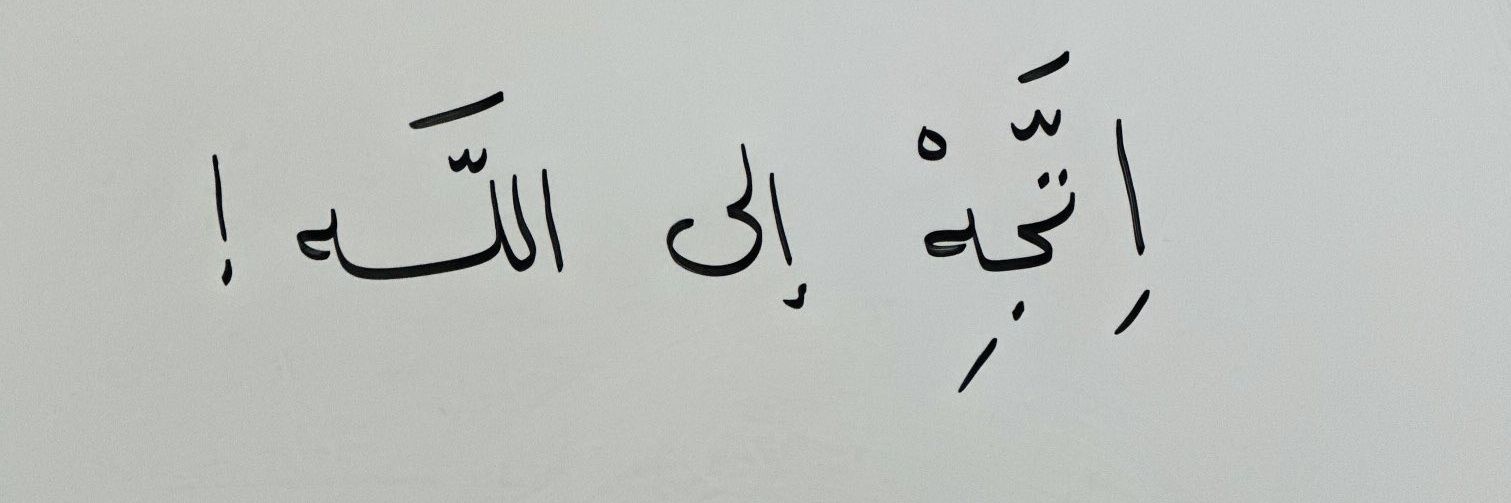 اِتَّجِهْ إلى اللَّه !